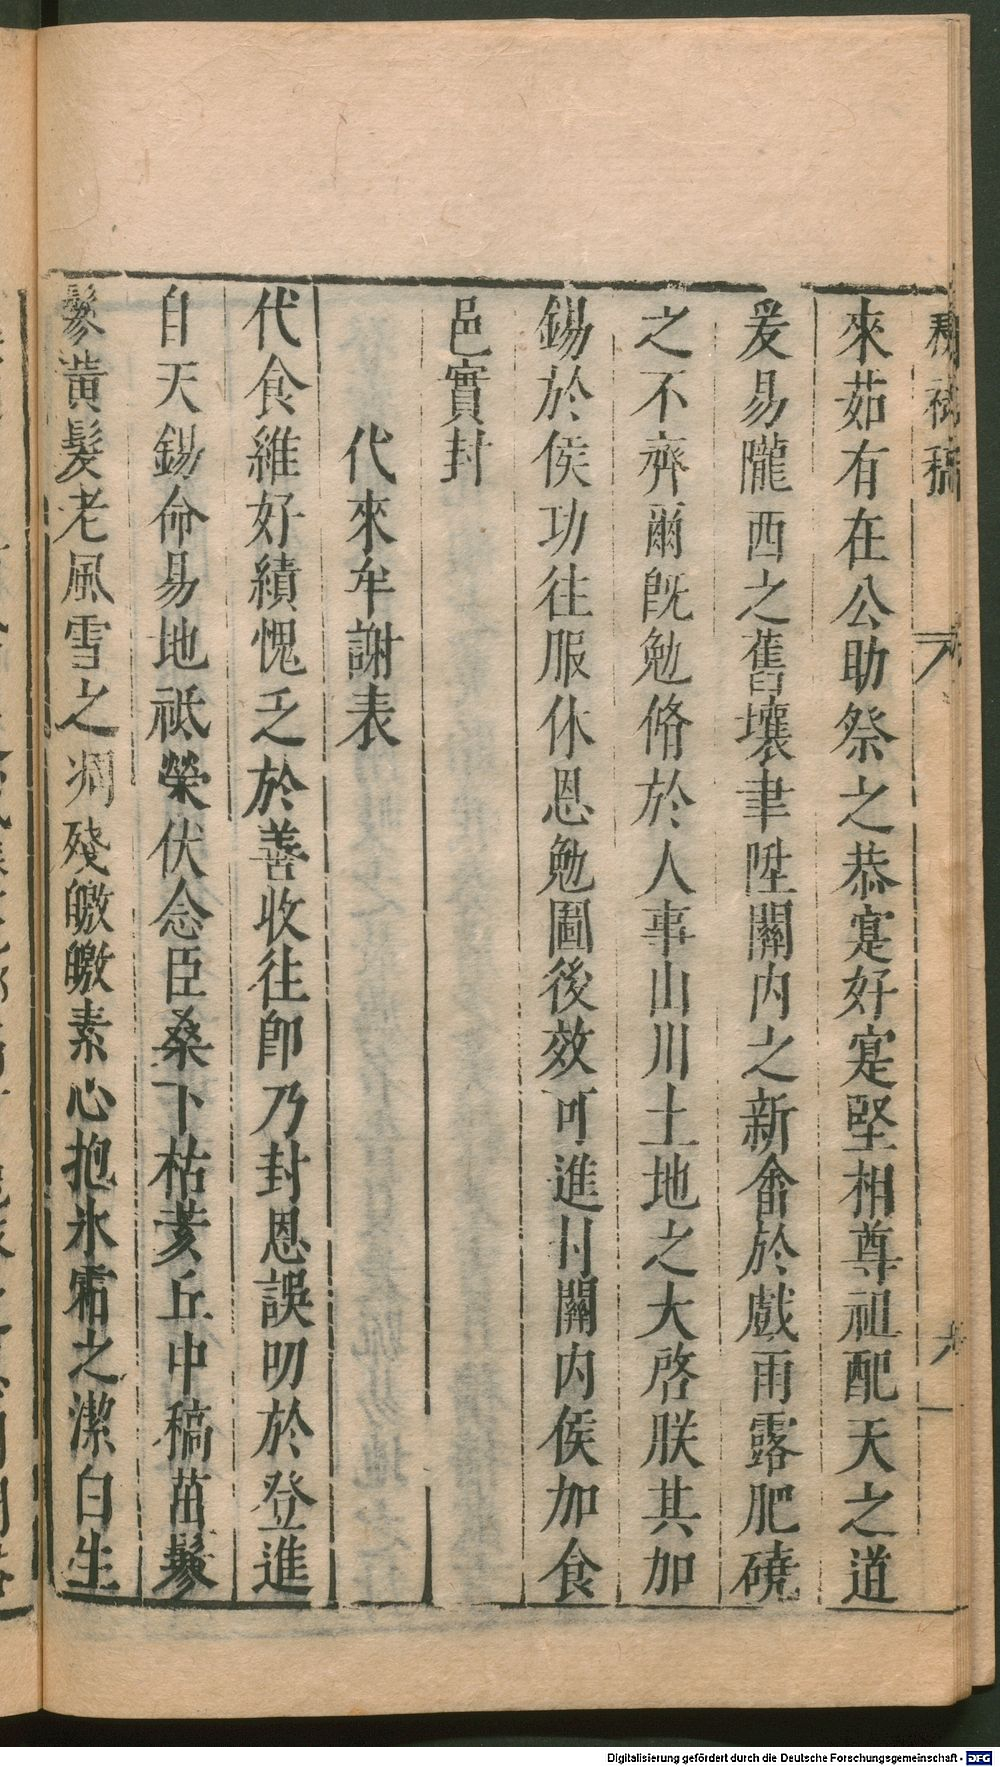 來茹有在公助祭之恭寔好寔堅相尊祖配天之道
爰易隴西之舊壤聿陞關内之新畬於戲雨露肥磽
之不齊爾旣勉脩於人事山川土地之大啓朕其加
錫於侯功往服休恩勉圖後效可進封關内侯加食
邑實封
代來牟謝表
代食維好績愧乏於善收往卽乃封恩誤叨於登進
自天錫命易地祗榮伏念臣桑下枯荄丘中稿苗鬖
鬖黃髮老風雪之凋殘皦皦素心抱氷霜之潔白生
Digitalisierung gefördert durch die Deutsche Forschungsgemeinschaft - DFG